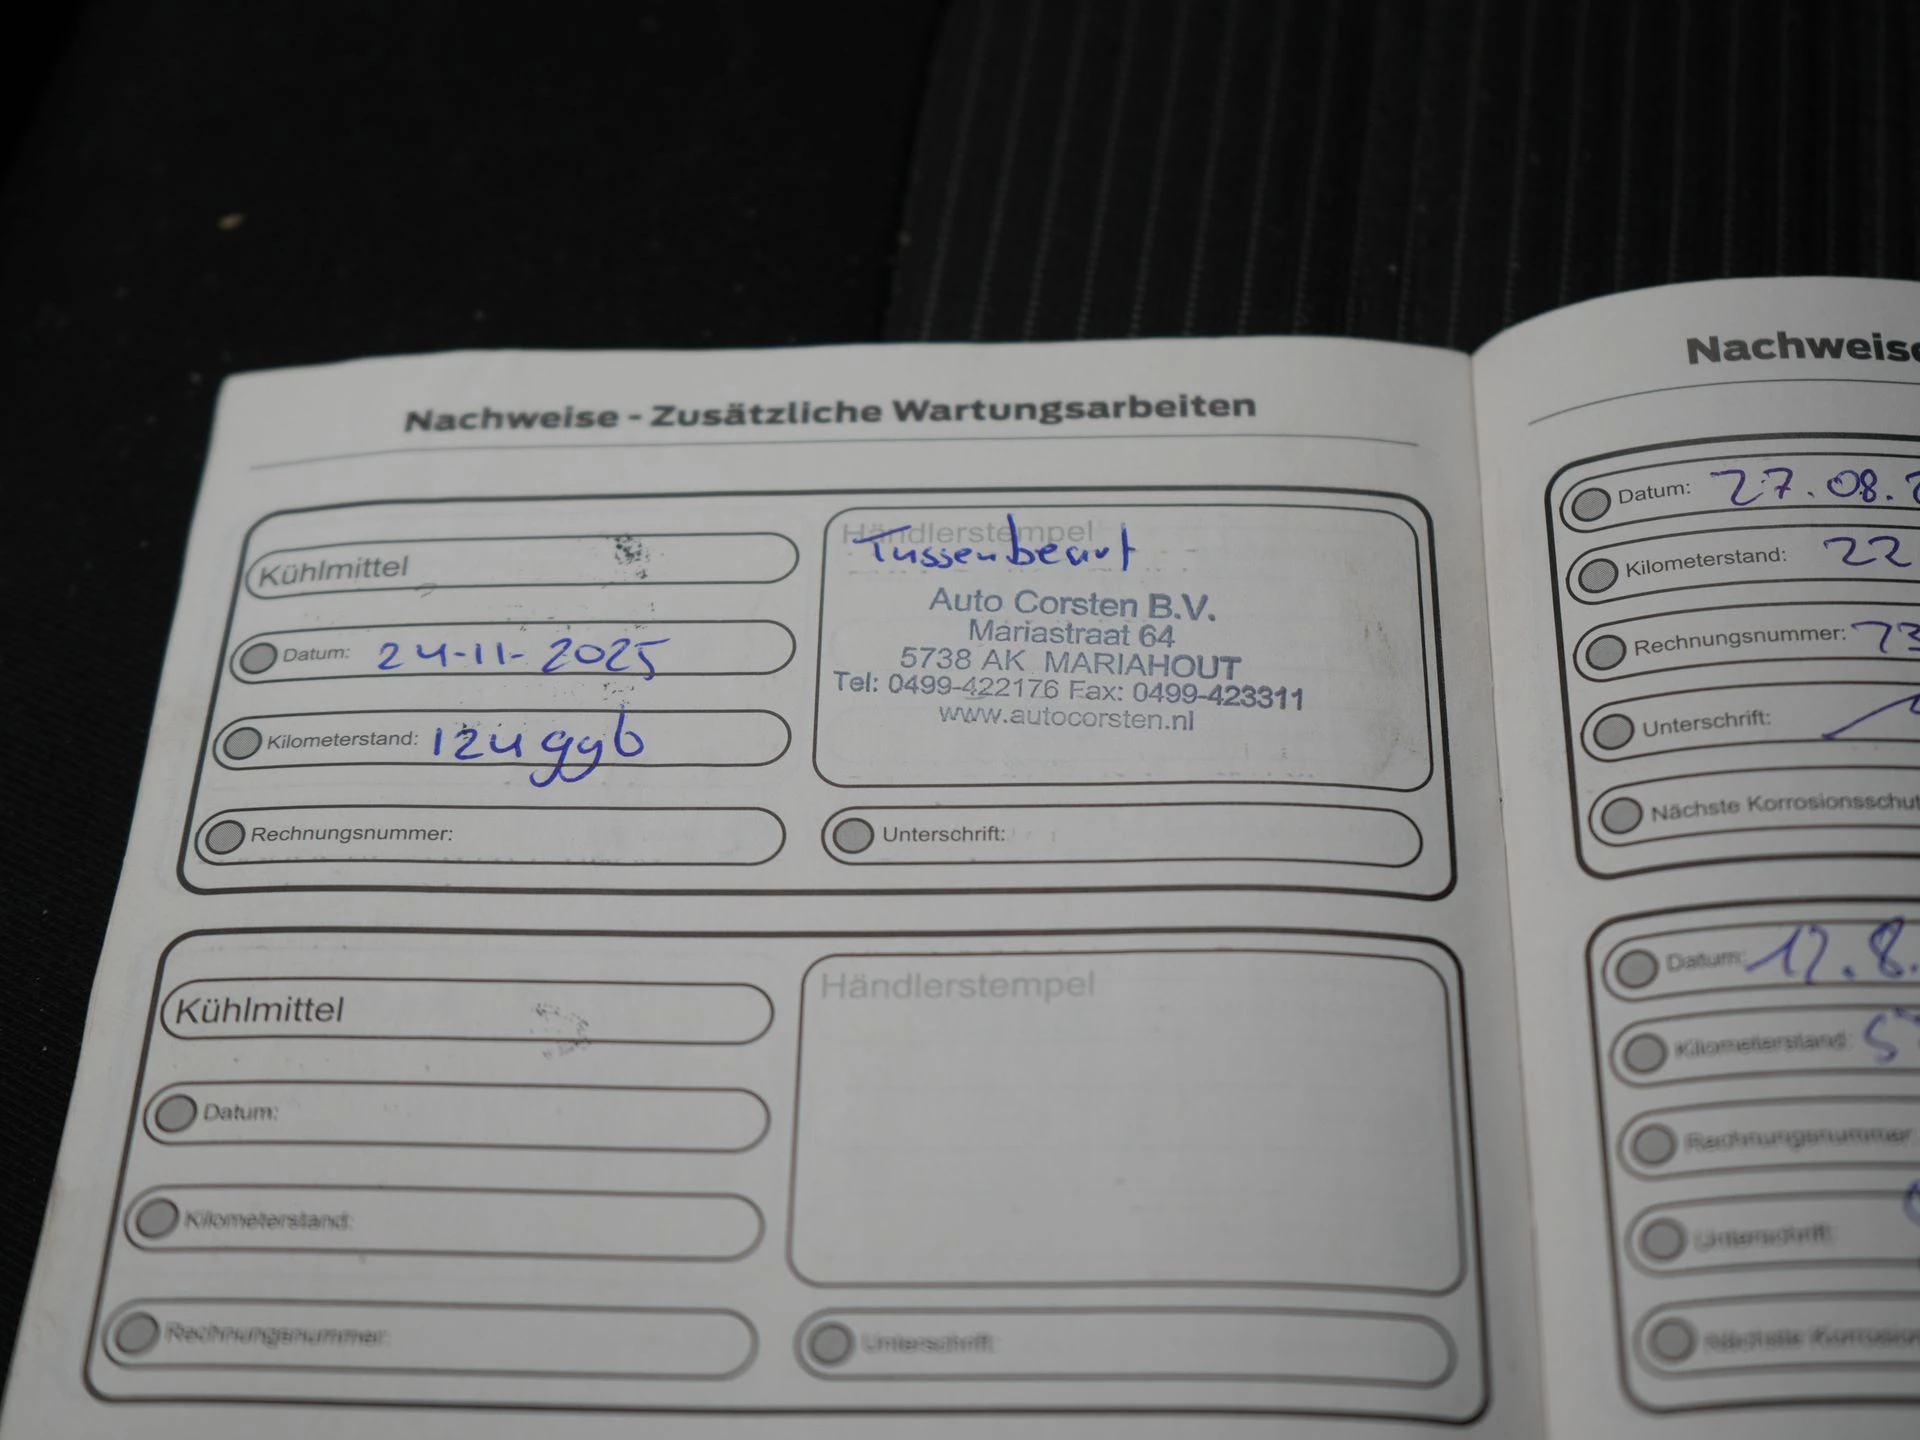 Nachweise - Zusätzliche Wartungsarbeiten
Kühlmittel
Datum: 24-11-2025
Kilometerstand: 124996
Rechnungsnummer:
Händlerstempel
Tussenbeurt
Auto Corsten B.V.
Mariastraat 64
5738 AK MARIAHOUT
Tel: 0499-422176 Fax: 0499-423311
www.autocorsten.nl
Unterschrift:
Kühlmittel
Datum:
Kilometerstand:
Rechnungsnummer:
Händlerstempel
Unterschrift:
Nachweise
Datum: 27.08.
Kilometerstand: 22
Rechnungsnummer: 73
Unterschrift:
Nächste Korrosionsschut
Datum: 12.8.
Kilometerstand: 5
Rechnungsnummer
Unterschrift:
Nächste Korrosion